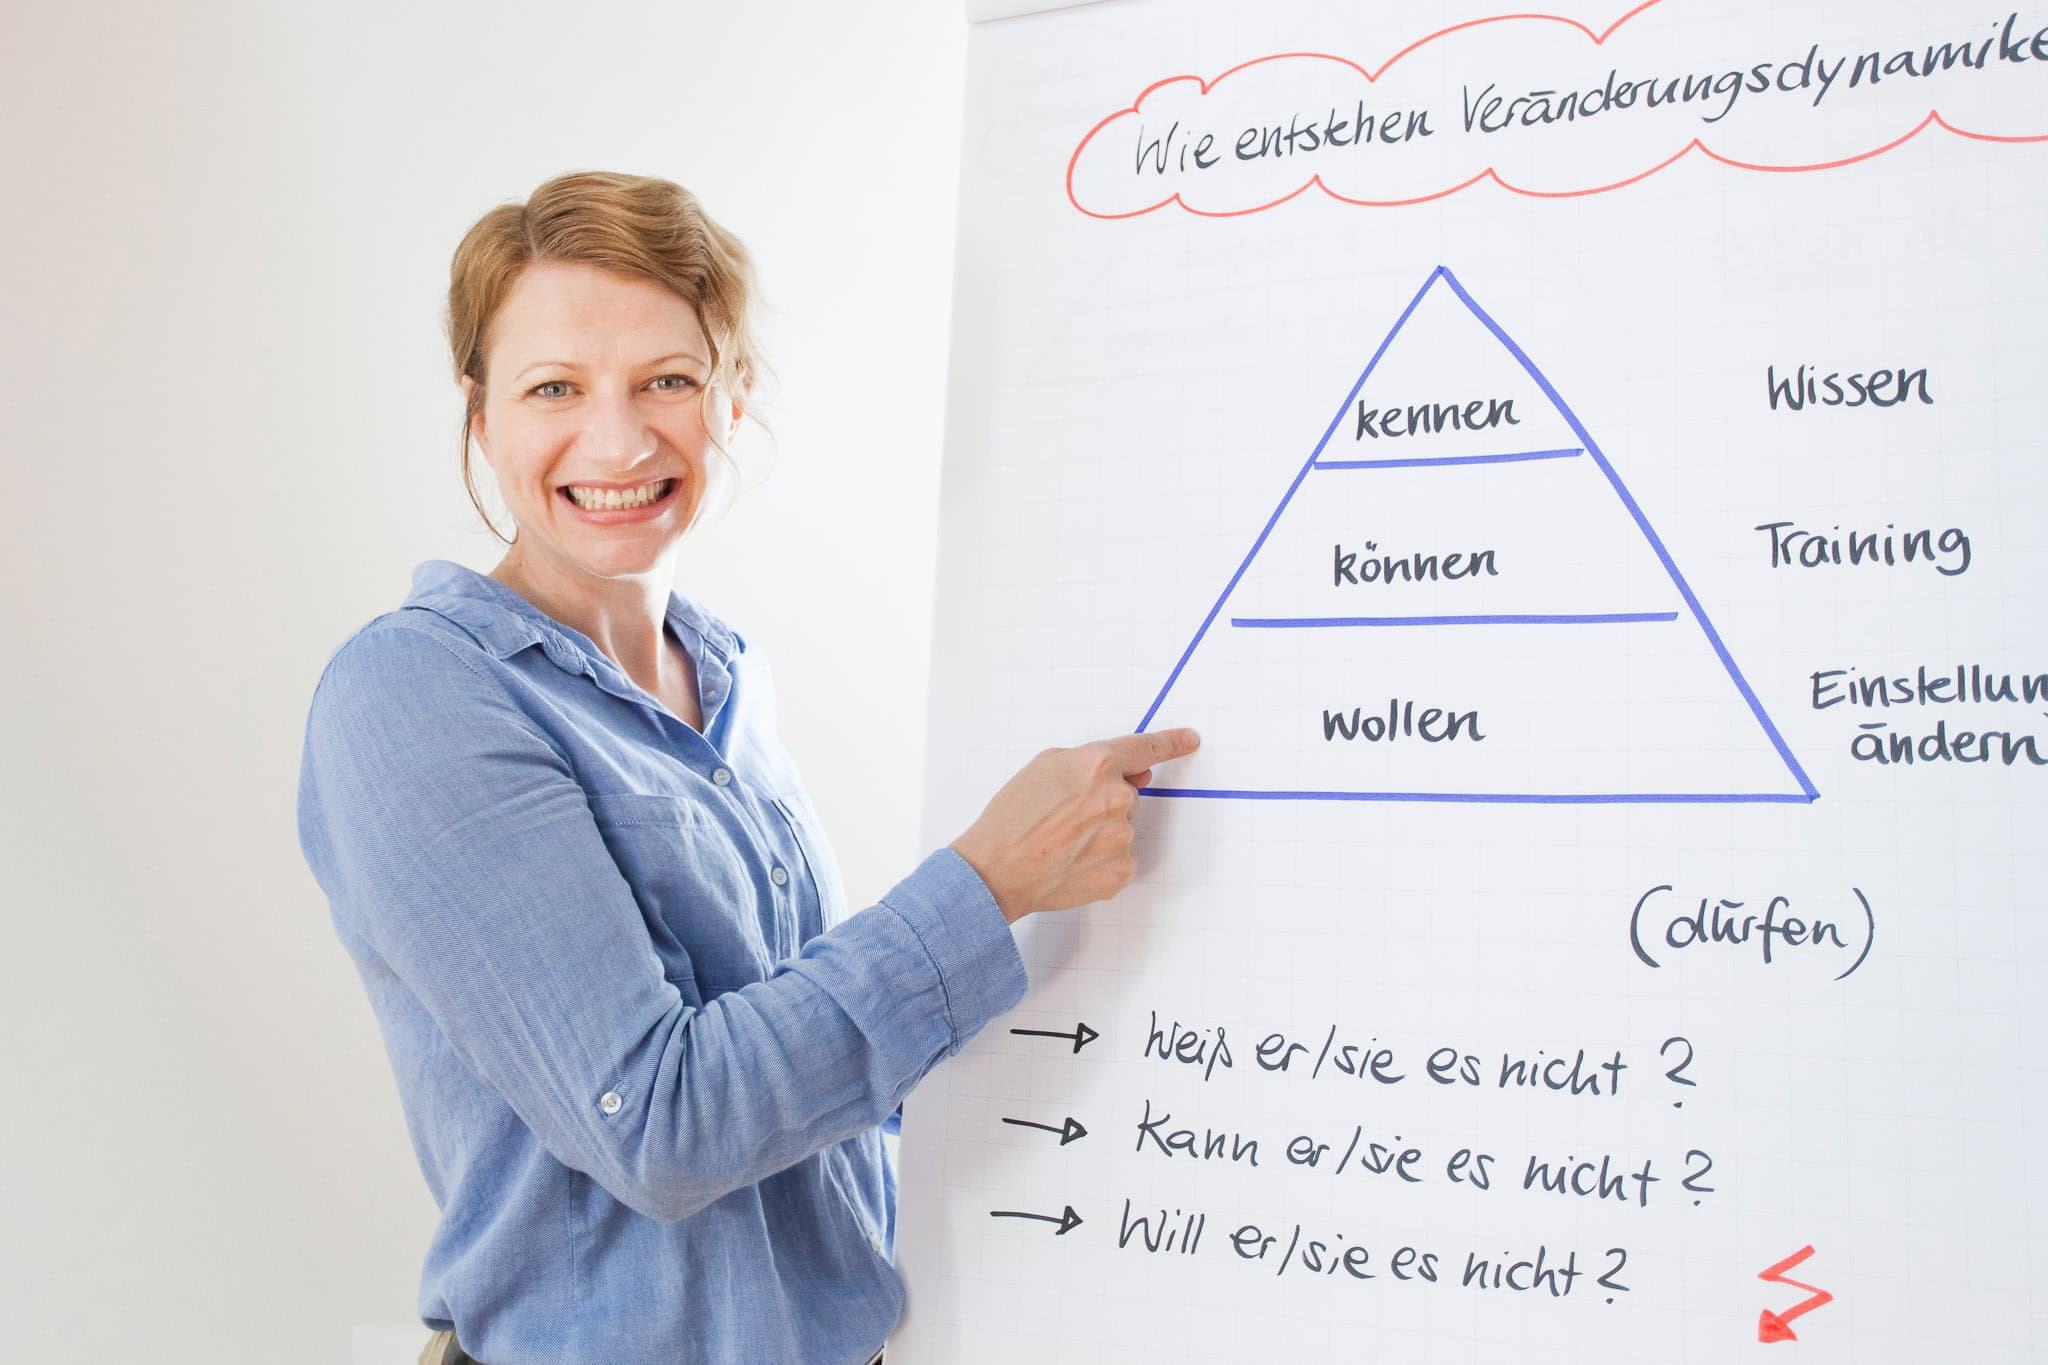 Wie entstehen Veränderungsdynamike
kennen
Wissen
können
Training
wollen
Einstellun
ändern
(dürfen)
→ Weiß er/sie es nicht?
→ Kann er/sie es nicht?
→ Will er/sie es nicht?